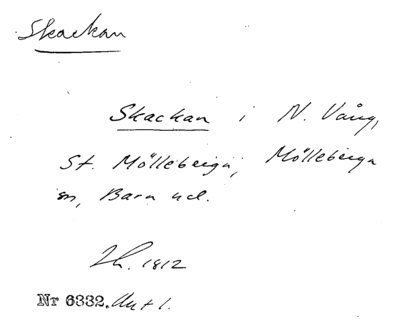 Skackan
Skackan i N. Vång,
St. Mölleberga, Mölleberga
sn, Bara hd.
1812
Nr 6332.